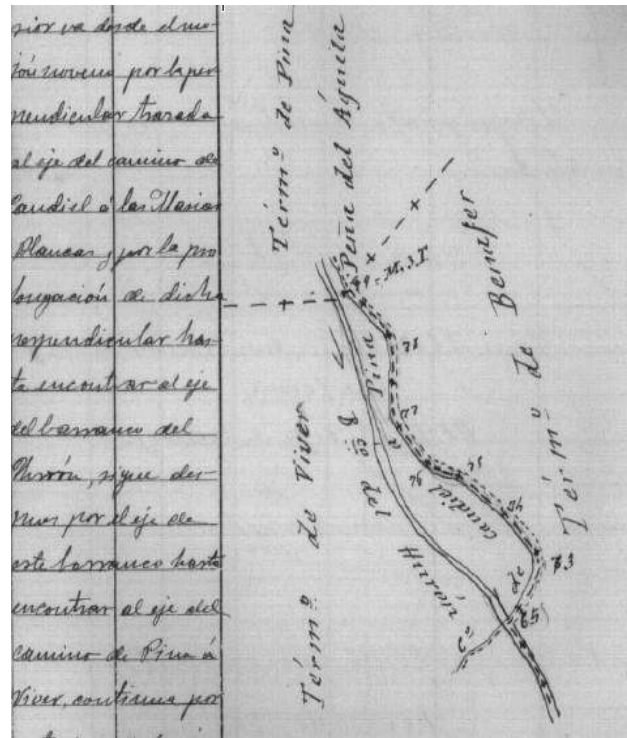 rior va desde el mo-
jón noveno por la per
pendicular trazada
al eje del camino de
Caudiel á las Masías
Blancas, y por la pro
longación de dicha
perpendicular has-
ta encontrar al eje
del barranco del
Hurón, sigue des-
pues por el eje de
este barranco hasta
encontrar al eje del
camino de Pina á
Viver, continua por
Térmº de Pina
Peña del Águila
M. 3 T.
Térmº de Benafer
Térmº de Viver
Bco del
Hurón
Cº de
Caudiel
a
Pina